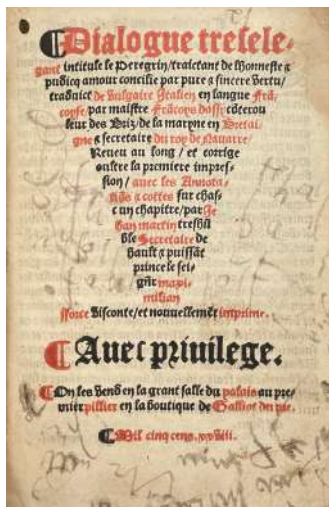 Dialogue treſele⸗
gant intitule le Peregrin/traictant de lhonneſte ⁊
pudicq amour concilie par pure ⁊ ſincere vertu/
traduict de vulgaire Italien en langue Frā⸗
coyſe/par maiſtre Frācoys daſſy cōterou
leur des Briz/de la maryne en Bretai⸗
gne ⁊ ſecretaire du roy de Nauarre/
Reueu au long / et corrige
oultre la premiere impreſ⸗
ſion / auec les Annota⸗
tiōs ⁊ cottes ſur chaſ⸗
cun chapitre/par Je
han martin treſhū
ble Secretaire de
hault ⁊ puiſſāt
prince le ſei⸗
gnr̄ maxi⸗
milian
ſforce Viſconte/et nouuellemēt imprime.
Auec priuilege.
On les vend en la grant ſalle du palais au pre⸗
mier pillier en la boutique de Galliot du pre.
Mil cinq cens. xxviii.